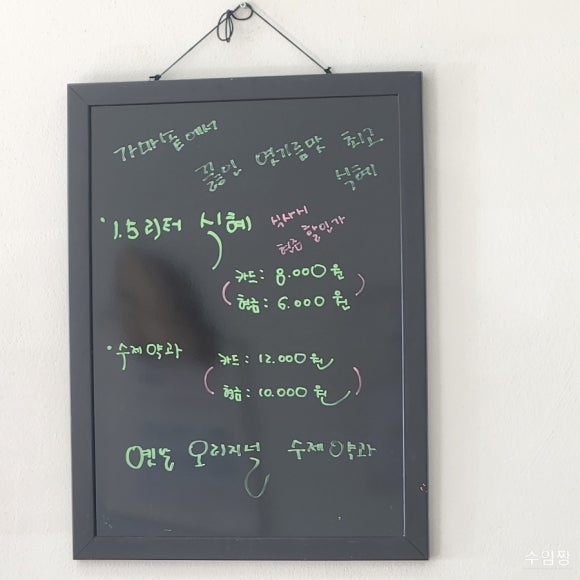 가마솥에서
끓인 옛기름맛 최고
식혜
· 1.5리터 식혜 식사시
현금 할인가
카드 : 8.000원
현금 : 6.000원
· 수제약과 카드 : 12.000원
현금 : 10.000원
옛날 오리지널 수제약과
수임짱